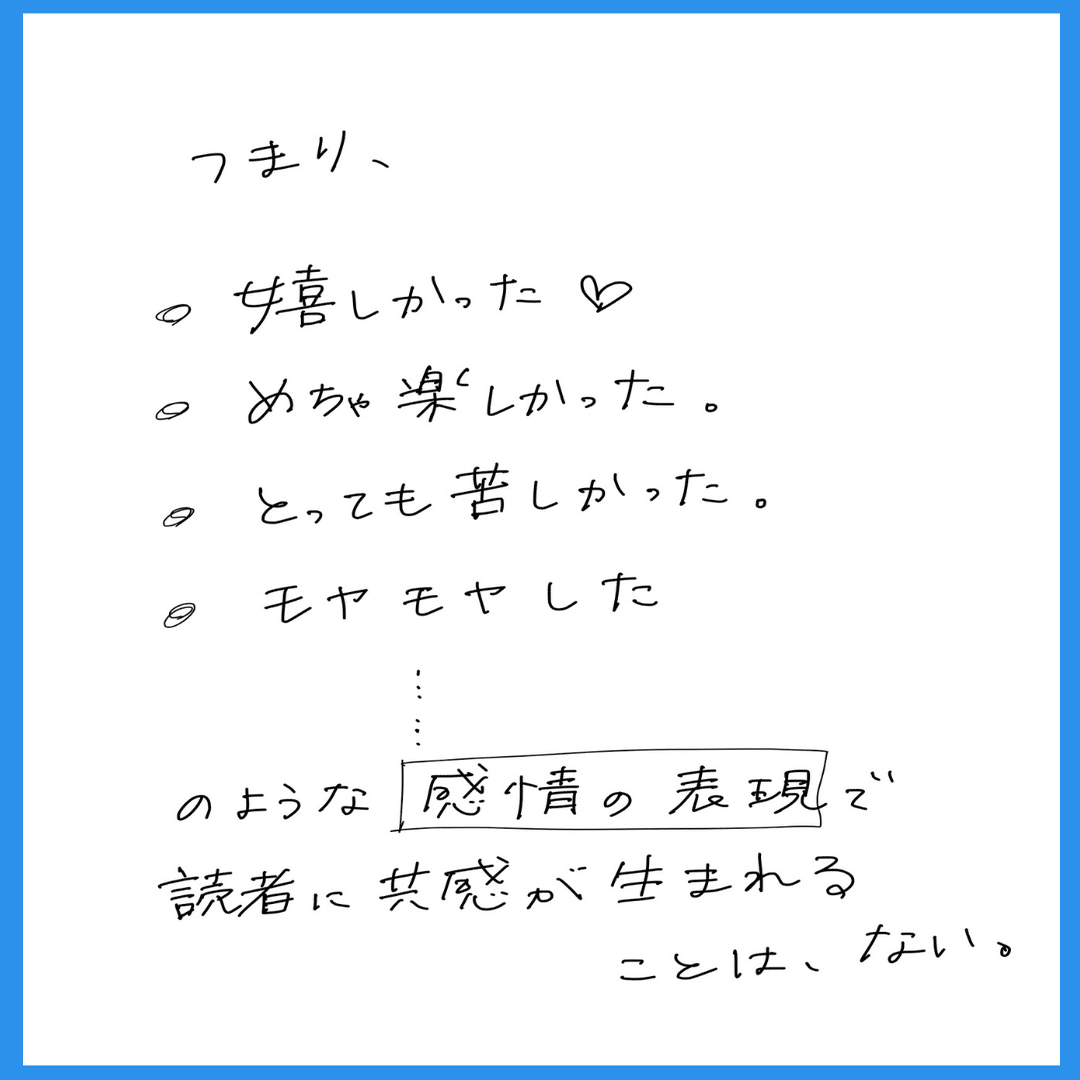 つまり、
• 嬉しかった ♡
• めちゃ楽しかった。
• とっても苦しかった。
• モヤモヤした
⋮
のような 感情の表現で
読者に共感が生まれる
ことは、ない。